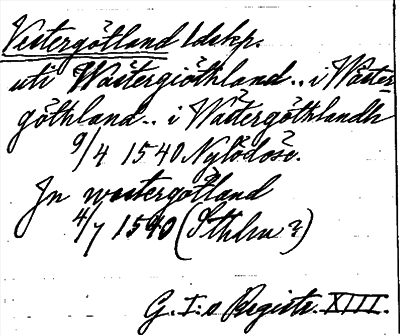 Vestergötland ldskp.
uti Wästergiöthland.. i Wäster-
göthland.. i Wästergöthlandh
9/4 1540 Nylödöse.
Jn westergötland
4/7 1540 (Sthlm?)
G. I:s Registr. XIII.